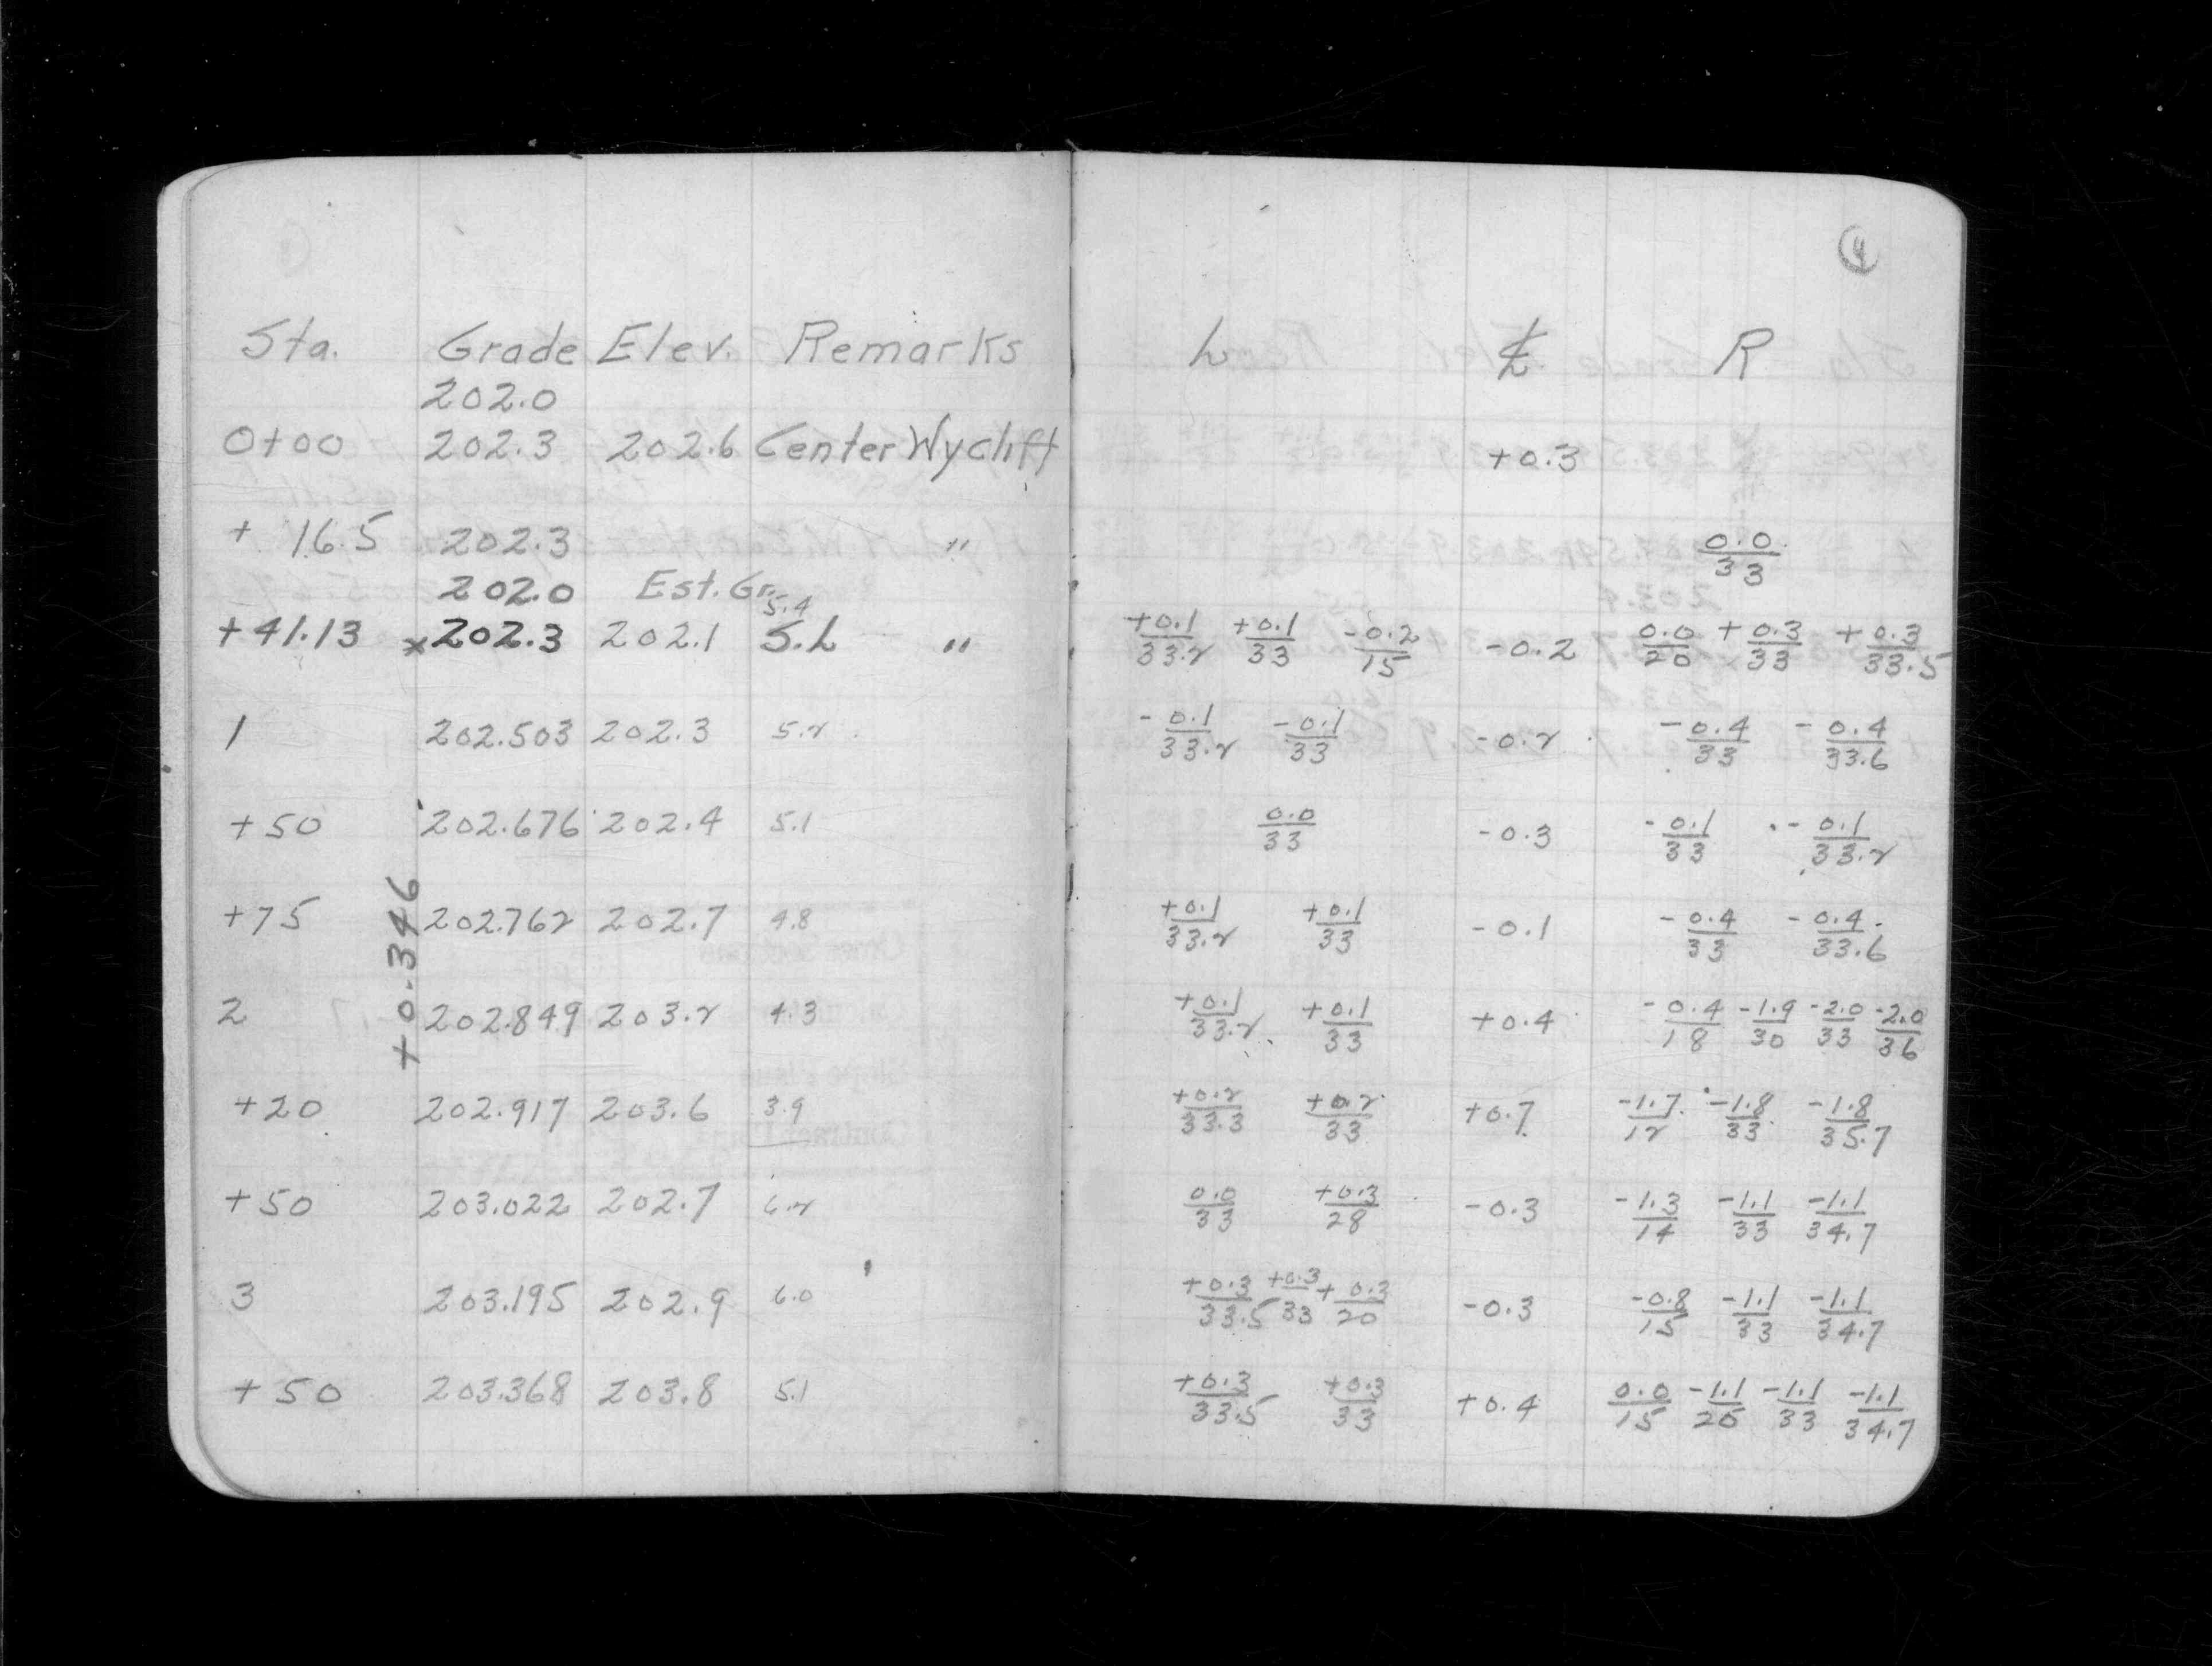 Sta. Grade Elev. Remarks
202.0
0+00 202.3 202.6 Center Wyclift
+ 16.5 202.3 "
202.0 Est. Gr.
5.4
+41.13 x202.3 202.1 S.L "
1 202.503 202.3 5.2
+50 202.676 202.4 5.1
+75 202.762 202.7 4.8
+0.346
2 202.849 203.2 4.3
+20 202.917 203.6 3.9
+50 203.022 202.7 6.2
3 203.195 202.9 6.0
+50 203.368 203.8 5.1
4
L ℄ R
+0.3
0.0/33
+0.1/33.2 +0.1/33 -0.2/15 -0.2 0.0/20 +0.3/33 +0.3/33.5
-0.1/33.2 -0.1/33 -0.2 -0.4/33 -0.4/33.6
0.0/33 -0.3 -0.1/33 -0.1/33.2
+0.1/33.2 +0.1/33 -0.1 -0.4/33 -0.4/33.6
+0.1/33.2 +0.1/33 +0.4 -0.4/18 -1.9/30 -2.0/33 -2.0/36
+0.2/33.3 +0.2/33 +0.7 -1.7/12 -1.8/33 -1.8/35.7
0.0/33 +0.3/28 -0.3 -1.3/14 -1.1/33 -1.1/34.7
+0.3/33.5 +0.3/33 +0.3/20 -0.3 -0.8/15 -1.1/33 -1.1/34.7
+0.3/33.5 +0.3/33 +0.4 0.0/15 -1.1/25 -1.1/33 -1.1/34.7